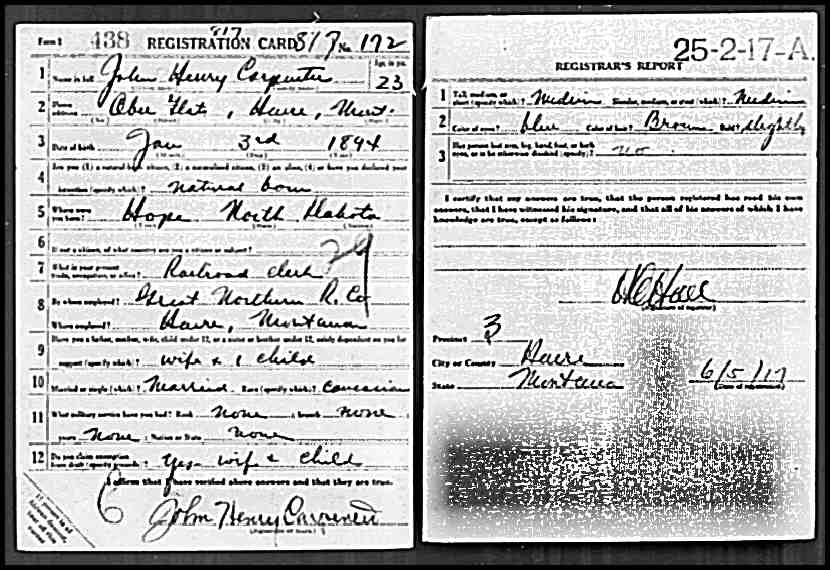 Form 1 438 REGISTRATION CARD 817 817 No. 172
1 Name in full John Henry Carpenter Age, in yrs. 23
2 Home address Havre, Mont.
3 Date of birth Jan 3rd 1894
4 Are you (1) a natural born citizen, (2) a naturalized citizen, (3) an alien, (4) or have you declared your
intention (specify which)? natural born
5 Where were you born? Hope North Dakota
6 If not a citizen, of what country are you a citizen or subject?
29
7 What is your present trade, occupation, or office? Railroad clerk
8 By whom employed? Great Northern R. Co
Where employed? Havre, Montana
9 Have you a father, mother, wife, child under 12, or a sister or brother under 12, solely dependent on you for
support (specify which)? wife & 1 child
10 Married or single (which)? Married Race (specify which)? Caucasian
11 What military service have you had? Rank none ; branch none ;
years none ; Nation or State none
12 Do you claim exemption from draft (specify grounds)? Yes wife & child
I affirm that I have verified above answers and that they are true.
John Henry Carpenter
25-2-17-A.
REGISTRAR'S REPORT
1 Tall, medium, or short (specify which)? Medium Slender, medium, or stout (which)? Medium
2 Color of eyes? blue Color of hair? Brown Bald? slightly
3 Has person lost arm, leg, hand, foot, or both eyes, or is he otherwise disabled (specify)? no
I certify that my answers are true, that the person registered has read his own
answers, that I have witnessed his signature, and that all of his answers of which I have
knowledge are true, except as follows:
(Signature of registrar)
Precinct 3
City or County Havre
State Montana 6/5/17
(Date of registration)